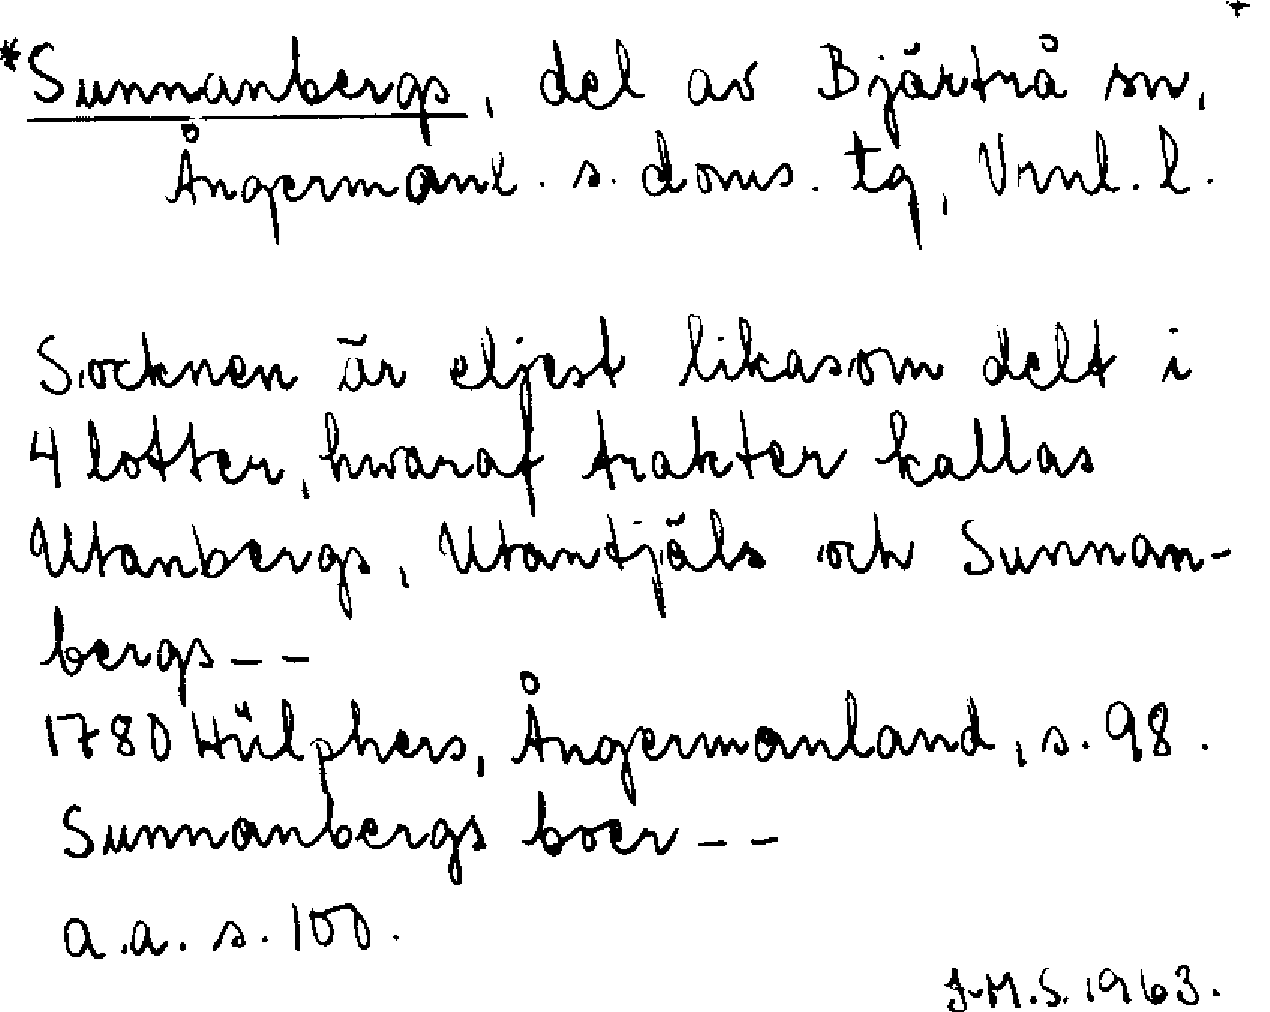 *Sunnanbergs, del av Bjärtrå sn,
Ångermanl. s. doms. tg, Vrnl. l.
Socknen är eljest likasom delt i
4 lotter, hwaraf trakter kallas
Utanbergs, Utantjäls och Sunnan-
bergs--
1780 Hülphers, Ångermanland, s. 98.
Sunnanbergs boer--
a.a. s. 100.
J-M.S. 1963.